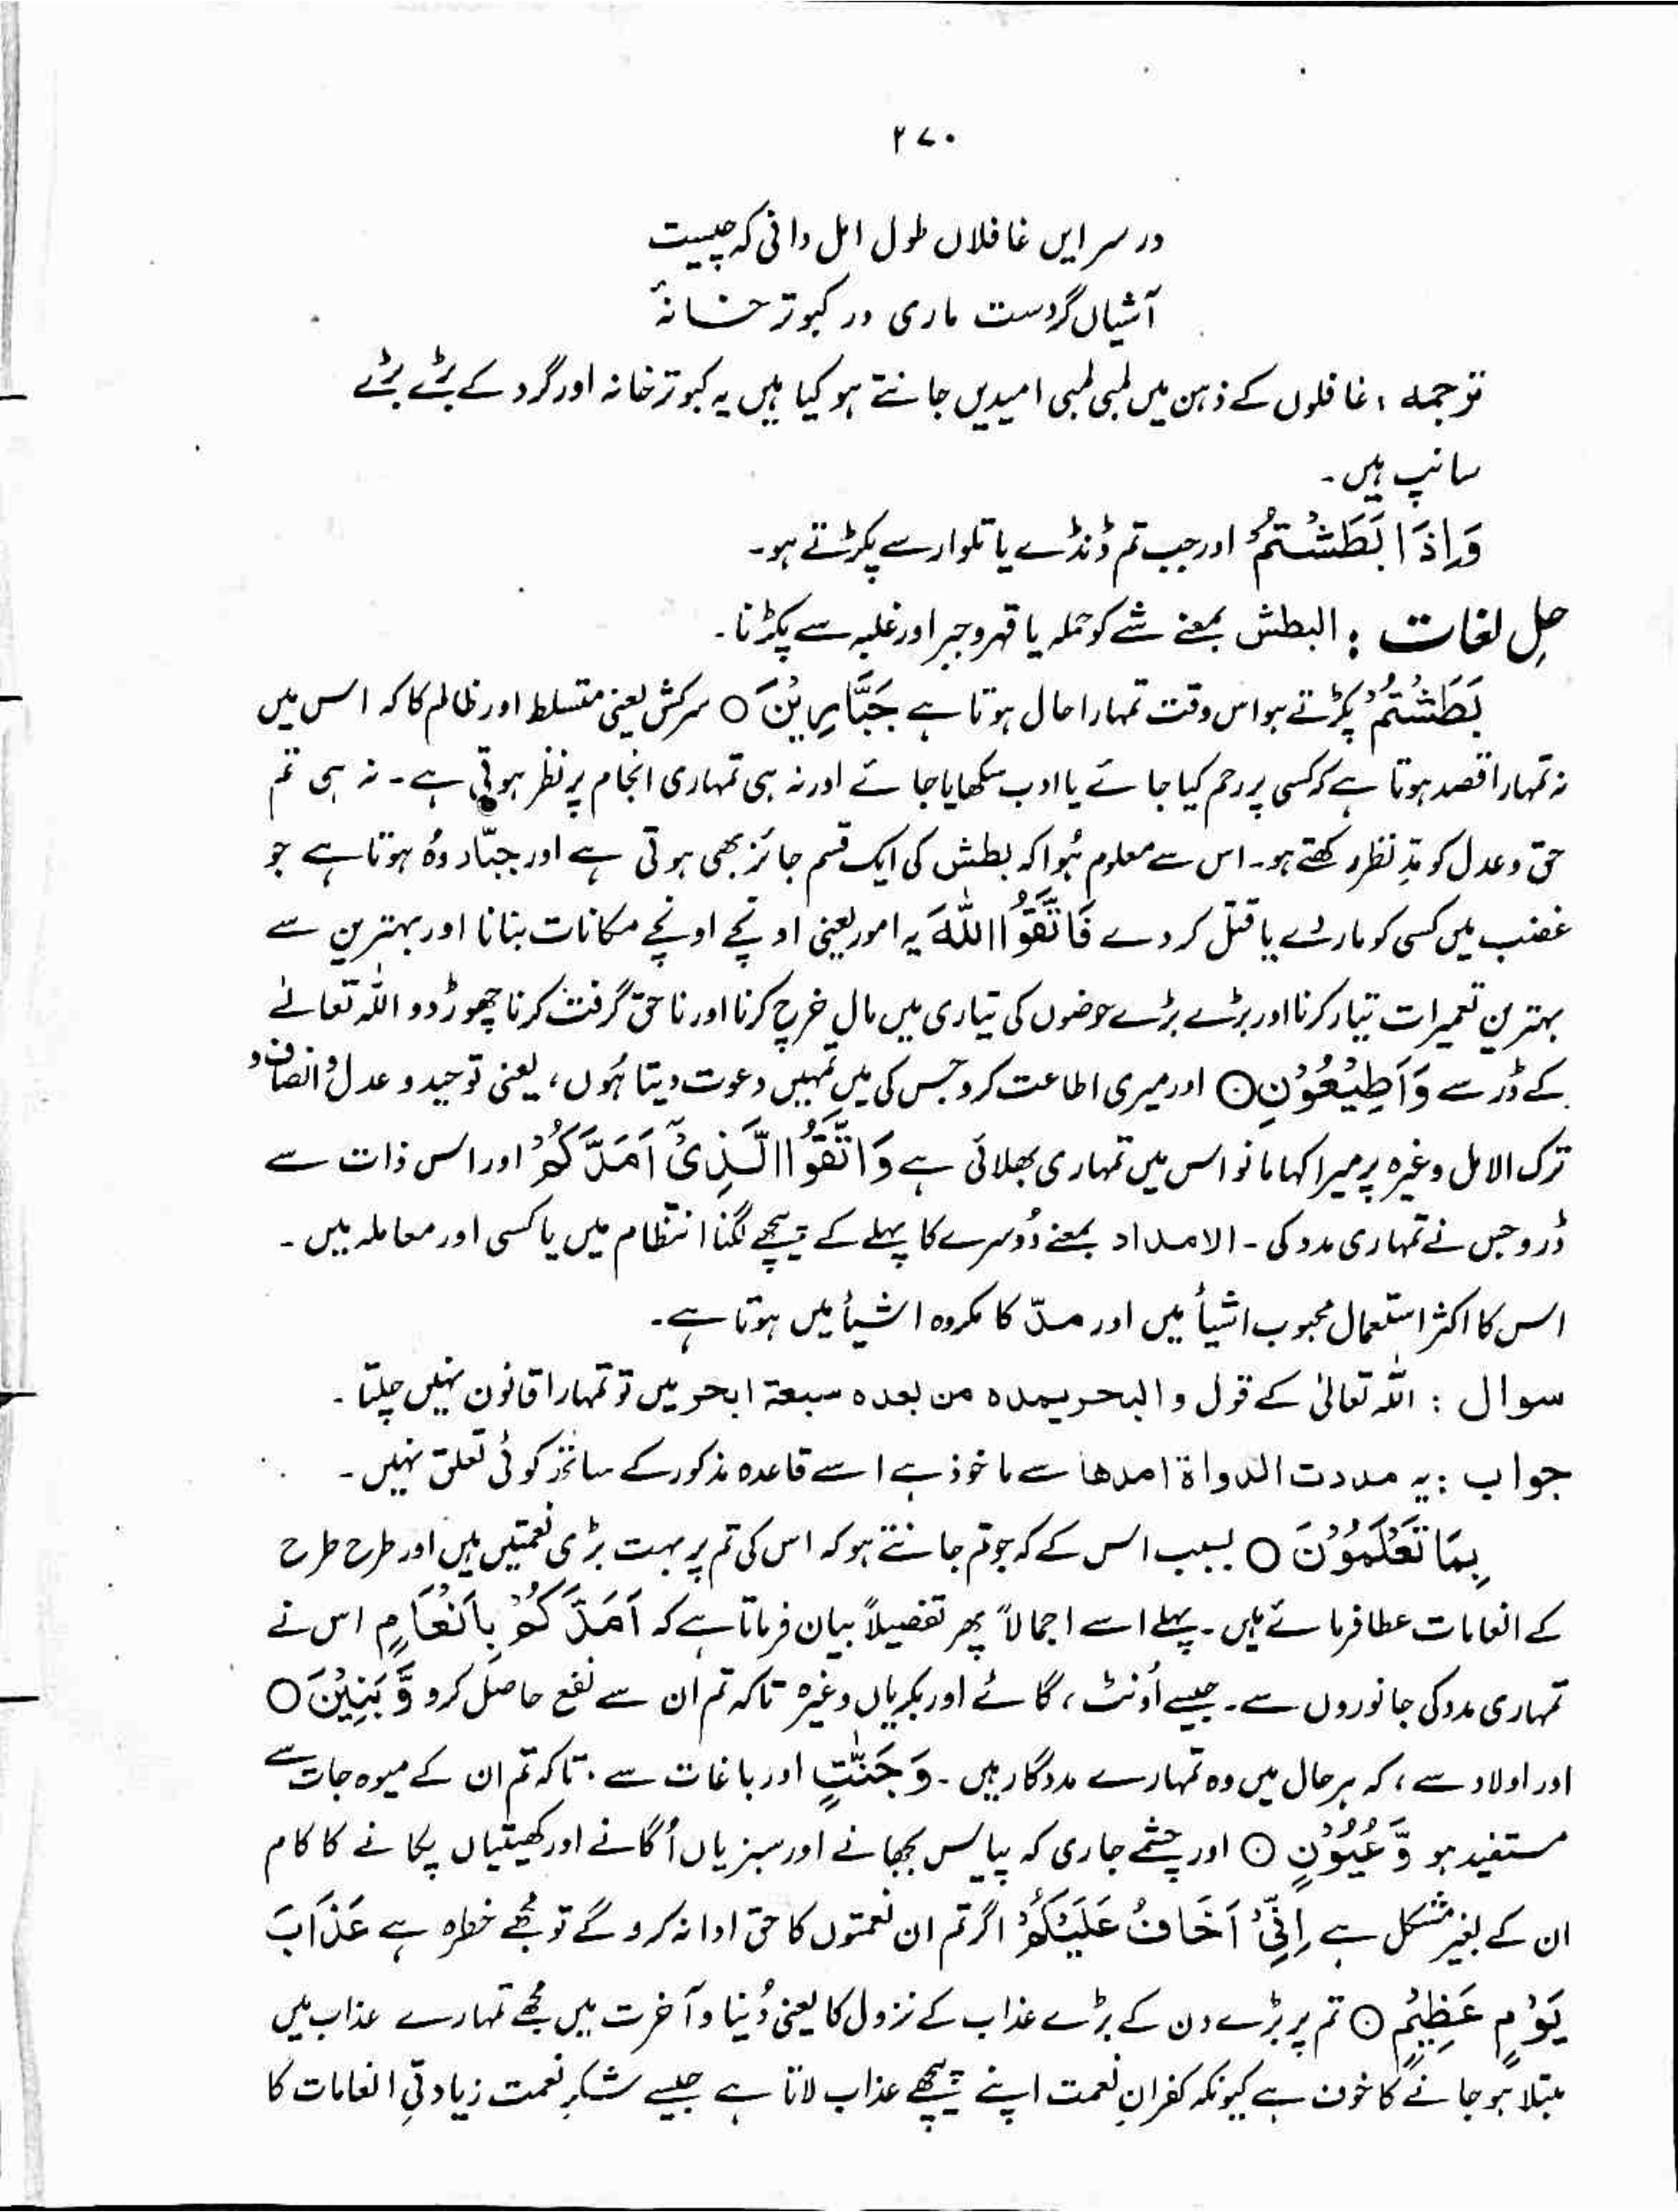 ۲۷۰
در سر ایں غافلاں طول امل دانی کہ چیست
آشیاں گردست ماری در کبوتر خانۂ
ترجمہ : غافلوں کے ذہن میں لمبی لمبی امیدیں جانتے ہو کیا ہیں یہ کبوتر خانہ اور گرد کے بڑے بڑے
سانپ ہیں۔
وَاِذَا بَطَشْتُمْ اور جب تم ڈنڈے یا تلوار سے پکڑتے ہو۔
حلِ لغات : البطش بمعنے شے کو حملہ یا قہر و جبر اور غلبہ سے پکڑنا۔
بَطَشْتُمْ پکڑتے ہو اس وقت تمہارا حال ہوتا ہے جَبَّارِیْنَ ○ سرکش یعنی متسلط اور ظالم کا کہ اس میں
نہ تمہارا قصد ہوتا ہے کہ کسی پر رحم کیا جائے یا ادب سکھایا جائے اور نہ ہی تمہاری انجام پر نظر ہوتی ہے۔ نہ ہی تم
حق و عدل کو مدِّ نظر رکھتے ہو۔ اس سے معلوم ہُوا کہ بطش کی ایک قسم جائز بھی ہوتی ہے اور جبّار وُہ ہوتا ہے جو
غضب میں کسی کو مارے یا قتل کر دے فَاتَّقُوا اللّٰہَ یہ امور یعنی اونچے اونچے مکانات بنانا اور بہترین سے
بہترین تعمیرات تیار کرنا اور بڑے بڑے حوضوں کی تیاری میں مال خرچ کرنا اور ناحق گرفت کرنا چھوڑ دو اللہ تعالےٰ
کے ڈر سے وَاَطِیْعُوْنِ ○ اور میری اطاعت کرو جس کی میں تمہیں دعوت دیتا ہُوں، یعنی توحید و عدل و انصاف و
ترک الامل وغیرہ پر میرا کہا مانو اس میں تمہاری بھلائی ہے وَاتَّقُوا الَّذِیْٓ اَمَدَّکُمْ اور اس ذات سے
ڈرو جس نے تمہاری مدد کی۔ الامداد بمعنے دُوسرے کا پہلے کے پیچھے لگنا انتظام میں یا کسی اور معاملہ میں۔
اس کا اکثر استعمال محبوب اشیأ میں اور مدّ کا مکروہ اشیأ میں ہوتا ہے۔
سوال : اللہ تعالیٰ کے قول والبحر یمدہ من بعدہ سبعۃ ابحر میں تو تمہارا قانون نہیں چلتا۔
جواب : یہ مددت الدواۃ امدھا سے ماخوذ ہے اسے قاعدہ مذکور کے ساتھ کوئی تعلق نہیں۔
بِمَا تَعْلَمُوْنَ ○ بسبب اس کے کہ جو تم جانتے ہو کہ اس کی تم پر بہت بڑی نعمتیں ہیں اور طرح طرح
کے انعامات عطا فرمائے ہیں۔ پہلے اسے اجمالاً پھر تفصیلاً بیان فرماتا ہے کہ اَمَدَّکُمْ بِاَنْعَامٍ اس نے
تمہاری مدد کی جانوروں سے۔ جیسے اُونٹ، گائے اور بکریاں وغیرہ تاکہ تم ان سے نفع حاصل کرو وَّ بَنِیْنَ ○
اور اولاد سے، کہ ہر حال میں وہ تمہارے مددگار ہیں۔ وَجَنّٰتٍ اور باغات سے۔ تاکہ تم ان کے میوہ جات سے
مستفید ہو وَّ عُیُوْنٍ ○ اور چشمے جاری کہ پیاس بجھانے اور سبزیاں اُگانے اور کھیتیاں پکانے کا کام
ان کے بغیر مشکل ہے اِنِّیْٓ اَخَافُ عَلَیْکُمْ اگر تم ان نعمتوں کا حق ادا نہ کرو گے تو مجھے خطرہ ہے عَذَابَ
یَوْمٍ عَظِیْمٍ ○ تم پر بڑے دن کے بڑے عذاب کے نزول کا یعنی دُنیا و آخرت میں مجھے تمہارے عذاب میں
مبتلا ہو جانے کا خوف ہے کیونکہ کفرانِ نعمت اپنے پیچھے عذاب لاتا ہے جیسے شکرِ نعمت زیادتیِ انعامات کا